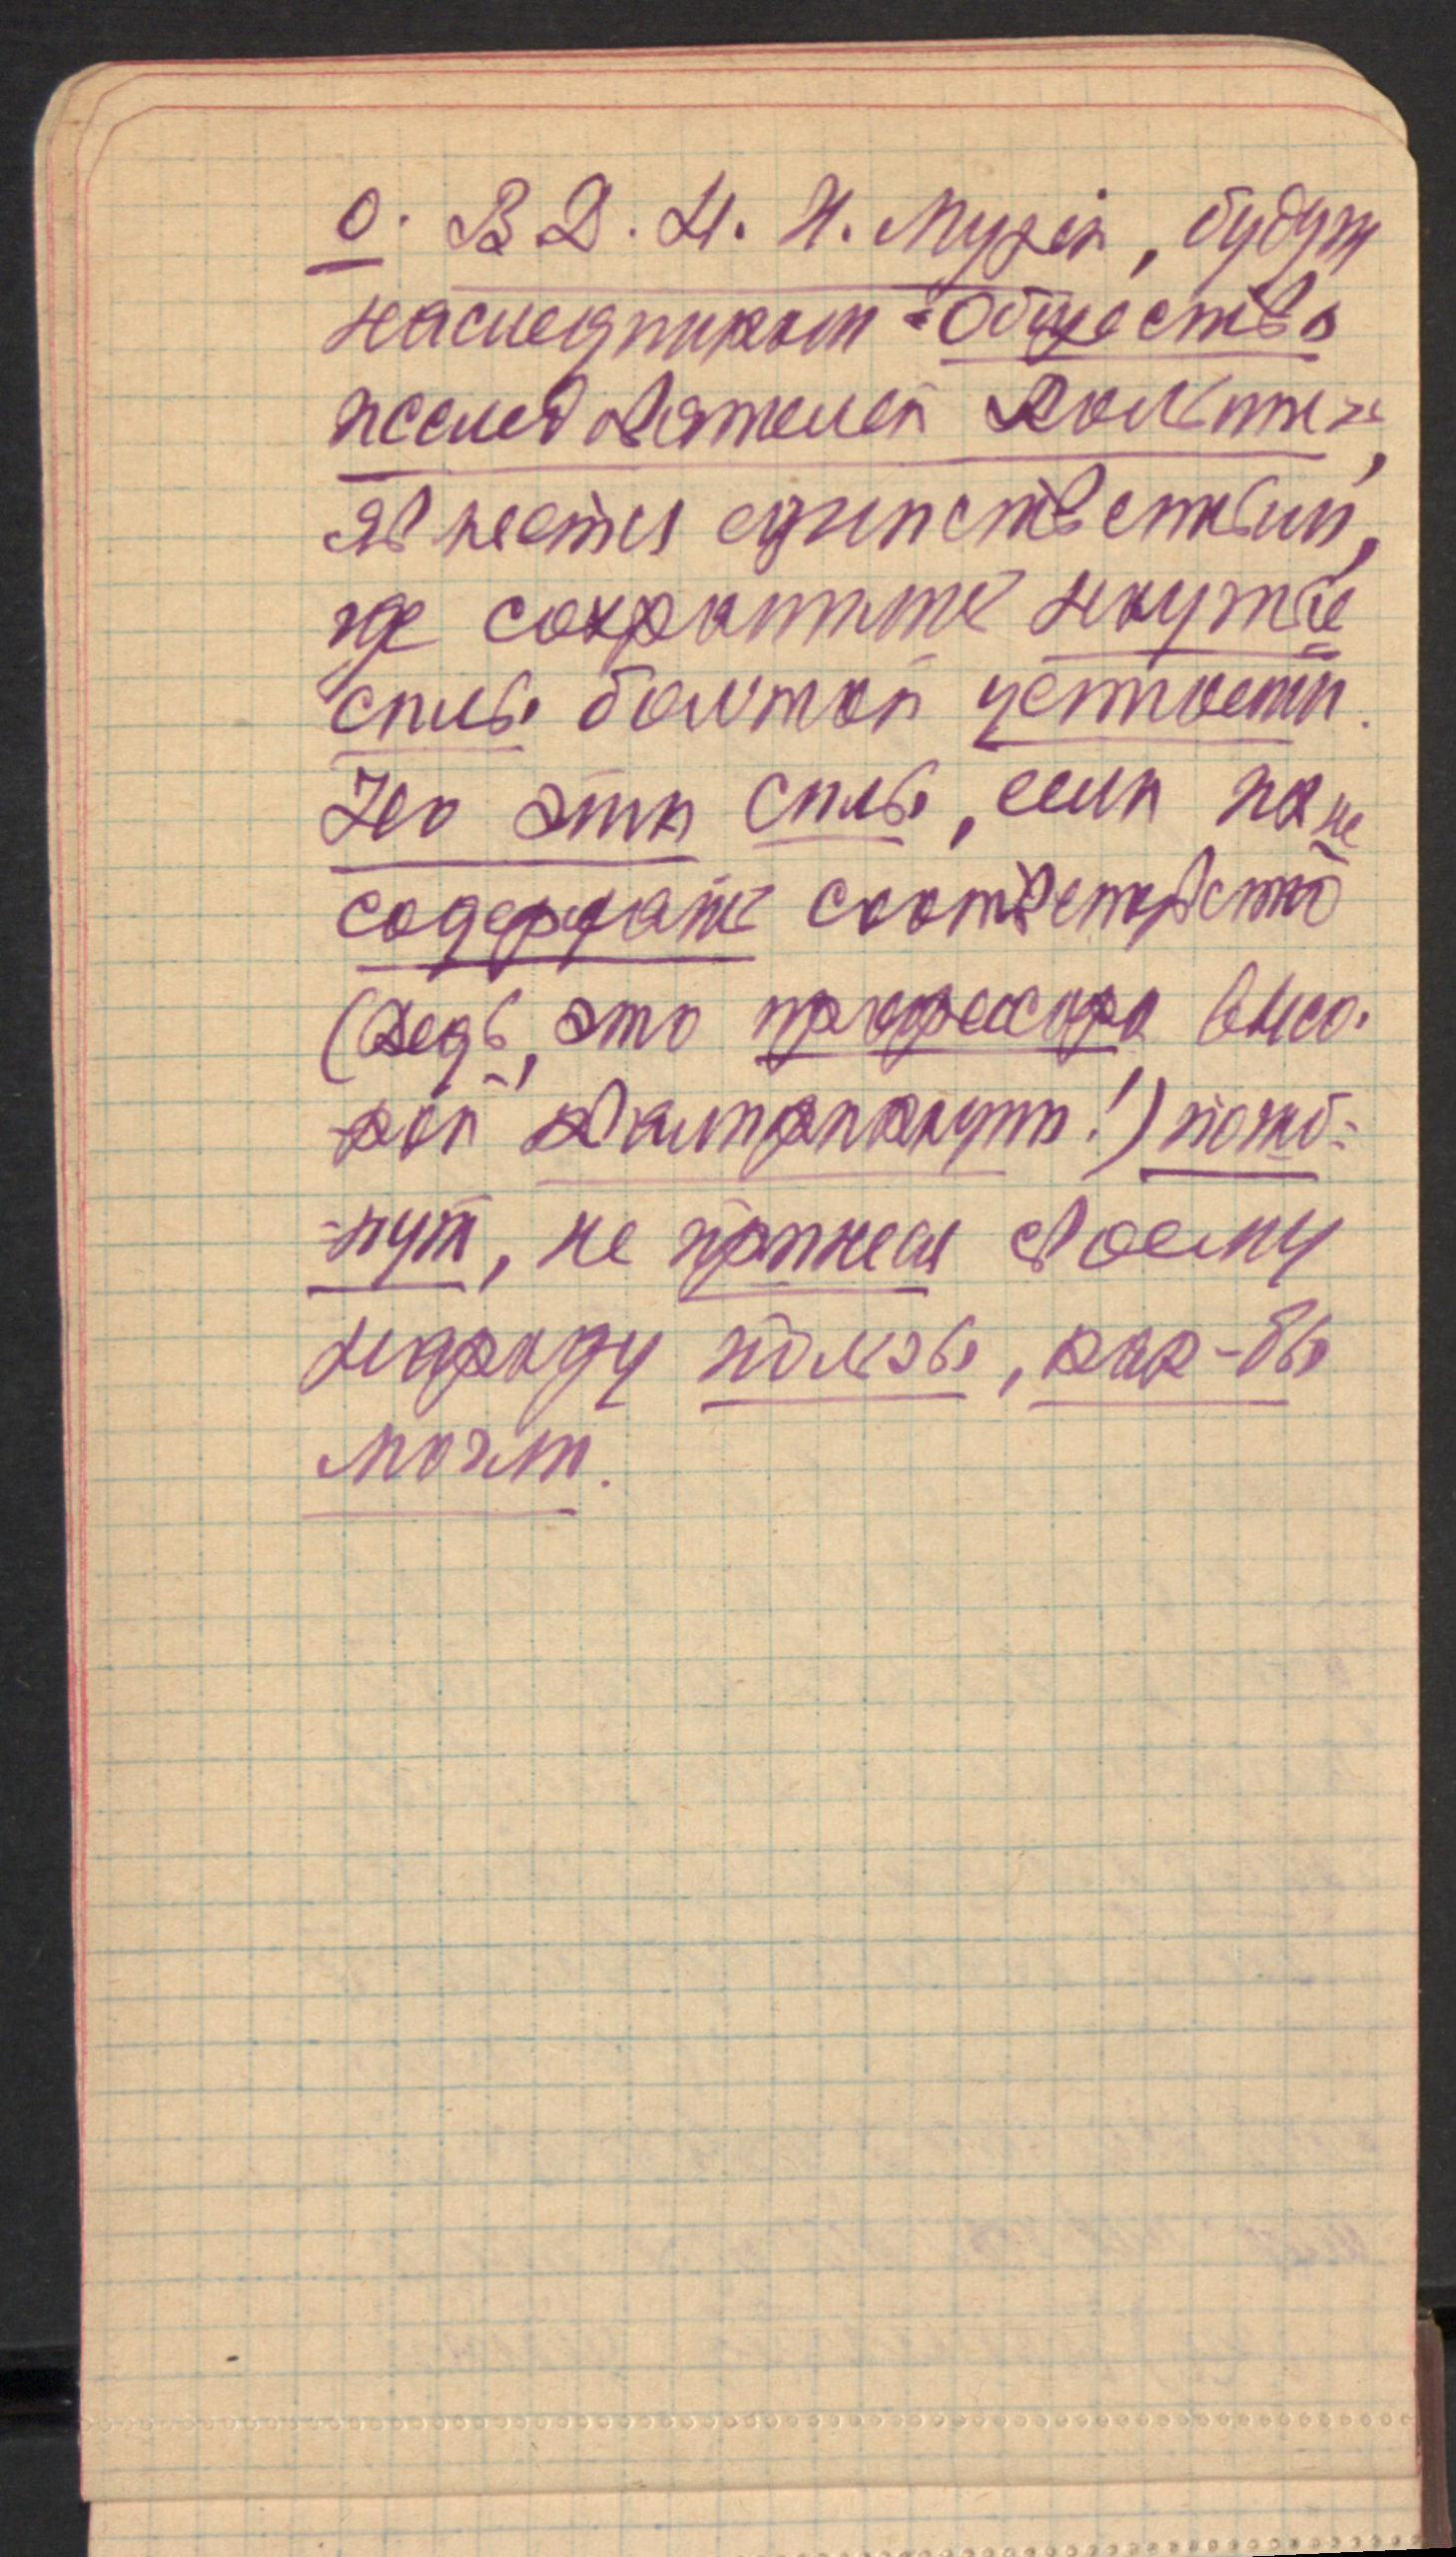 О. В Д. Н. Н. Музей, будуч
наследником "Общества
исследователей Волыни",
является единственный,
где сохранились научные
силы большой ценности.
Но эти силы, если их не
содержать соответственно
(ведь, это профессора высо-
кой квалификации!) погиб-
нут, не принеся своему
народу пользы, как-бы
могли.